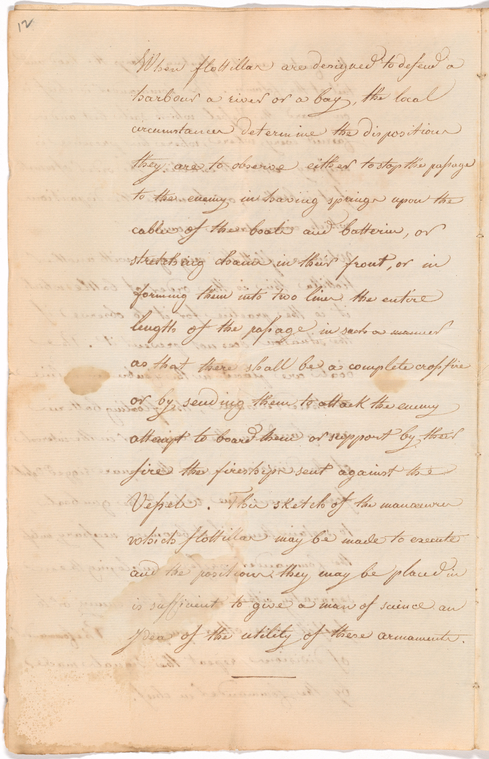 12
When flottillas are designed to defend a
harbour a river or a bay, the local
circumstances determine the dispositions
they are to observe either to stop the passage
to the enemy in having springs upon the
cables of the boats and batteries, or
stretching chains in their front, or in
forming them into two lines the entire
length of the passage in such a manner
as that there shall be a complete crossfire
or by sending them to attack the enemy
attempt to board them or support by their
fire the fireships sent against the
Vessels. This sketch of the manœuvres
which flottillas may be made to execute
and the positions they may be placed in
is sufficient to give a man of science an
Idea of the utility of these armaments.